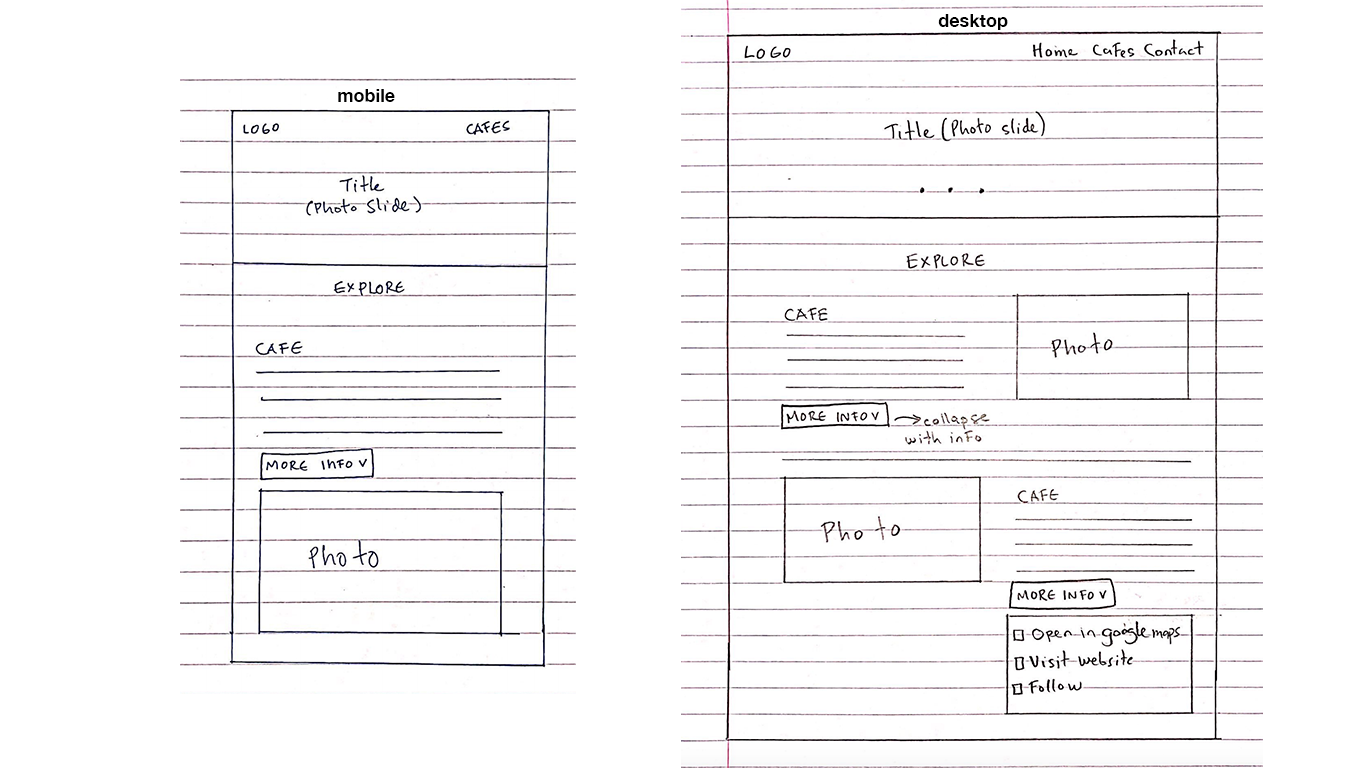 mobile
LOGO CAFES
Title
(Photo Slide)
EXPLORE
CAFE
MORE INFO V
Photo
desktop
LOGO Home Cafes Contact
Title (Photo slide)
EXPLORE
CAFE
Photo
MORE INFO V → collapse
with info
Photo
CAFE
MORE INFO V
Open in google maps
Visit website
Follow